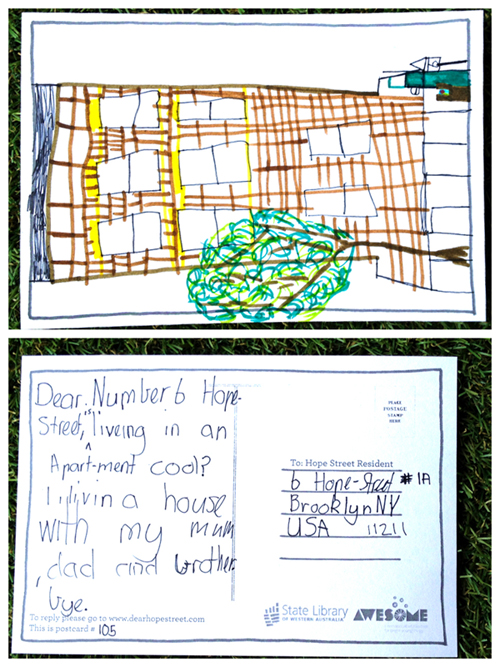 Dear. Number 6 Hope-
Street, is liveing in an
Apart-ment cool?
I livin a house
with my mum
,dad and brother.
bye.
To reply please go to www.dearhopestreet.com
This is postcard # 105
PLACE
POSTAGE
STAMP
HERE
To: Hope Street Resident
6 Hope-Street #1A
Brooklyn NY
USA 11211
State Library
OF WESTERN AUSTRALIA
AWESOME